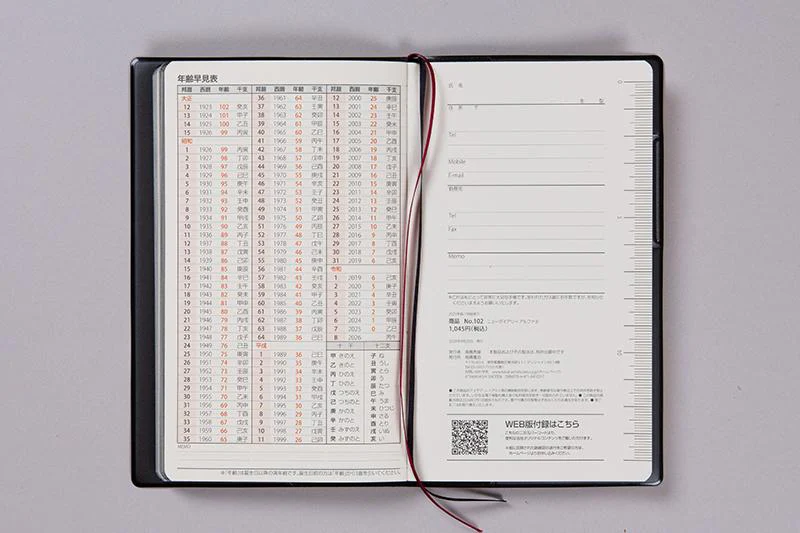 年齢早見表
邦暦 西暦 年齢 干支
大正
12 1923 102 癸亥
13 1924 101 甲子
14 1925 100 乙丑
15 1926 99 丙寅
昭和
1 1926 99 丙寅
2 1927 98 丁卯
3 1928 97 戊辰
4 1929 96 己巳
5 1930 95 庚午
6 1931 94 辛未
7 1932 93 壬申
8 1933 92 癸酉
9 1934 91 甲戌
10 1935 90 乙亥
11 1936 89 丙子
12 1937 88 丁丑
13 1938 87 戊寅
14 1939 86 己卯
15 1940 85 庚辰
16 1941 84 辛巳
17 1942 83 壬午
18 1943 82 癸未
19 1944 81 甲申
20 1945 80 乙酉
21 1946 79 丙戌
22 1947 78 丁亥
23 1948 77 戊子
24 1949 76 己丑
25 1950 75 庚寅
26 1951 74 辛卯
27 1952 73 壬辰
28 1953 72 癸巳
29 1954 71 甲午
30 1955 70 乙未
31 1956 69 丙申
32 1957 68 丁酉
33 1958 67 戊戌
34 1959 66 己亥
35 1960 65 庚子
邦暦 西暦 年齢 干支
36 1961 64 辛丑
37 1962 63 壬寅
38 1963 62 癸卯
39 1964 61 甲辰
40 1965 60 乙巳
41 1966 59 丙午
42 1967 58 丁未
43 1968 57 戊申
44 1969 56 己酉
45 1970 55 庚戌
46 1971 54 辛亥
47 1972 53 壬子
48 1973 52 癸丑
49 1974 51 甲寅
50 1975 50 乙卯
51 1976 49 丙辰
52 1977 48 丁巳
53 1978 47 戊午
54 1979 46 己未
55 1980 45 庚申
56 1981 44 辛酉
57 1982 43 壬戌
58 1983 42 癸亥
59 1984 41 甲子
60 1985 40 乙丑
61 1986 39 丙寅
62 1987 38 丁卯
63 1988 37 戊辰
64 1989 36 己巳
平成
1 1989 36 己巳
2 1990 35 庚午
3 1991 34 辛未
4 1992 33 壬申
5 1993 32 癸酉
6 1994 31 甲戌
7 1995 30 乙亥
8 1996 29 丙子
9 1997 28 丁丑
10 1998 27 戊寅
11 1999 26 己卯
邦暦 西暦 年齢 干支
12 2000 25 庚辰
13 2001 24 辛巳
14 2002 23 壬午
15 2003 22 癸未
16 2004 21 甲申
17 2005 20 乙酉
18 2006 19 丙戌
19 2007 18 丁亥
20 2008 17 戊子
21 2009 16 己丑
22 2010 15 庚寅
23 2011 14 辛卯
24 2012 13 壬辰
25 2013 12 癸巳
26 2014 11 甲午
27 2015 10 乙未
28 2016 9 丙申
29 2017 8 丁酉
30 2018 7 戊戌
31 2019 6 己亥
令和
1 2019 6 己亥
2 2020 5 庚子
3 2021 4 辛丑
4 2022 3 壬寅
5 2023 2 癸卯
6 2024 1 甲辰
7 2025 0 乙巳
8 2026 丙午
十干 十二支
甲 きのえ 子 ね
乙 きのと 丑 うし
丙 ひのえ 寅 とら
丁 ひのと 卯 う
戊 つちのえ 辰 たつ
己 つちのと 巳 み
庚 かのえ 午 うま
辛 かのと 未 ひつじ
壬 みずのえ 申 さる
癸 みずのと 酉 とり
戌 いぬ
亥 い
MEMO
※「年齢」は誕生日以降の満年齢です。誕生日前の方は「年齢」から1歳を引いてください。
氏名
住所 〒
年 型
Tel
Mobile
E-mail
勤務先
Tel
Fax
Memo
商品 No.102 ニューダイアリー アルファ8
1,045円(税込)
WEB版付録はこちら
0
5
10